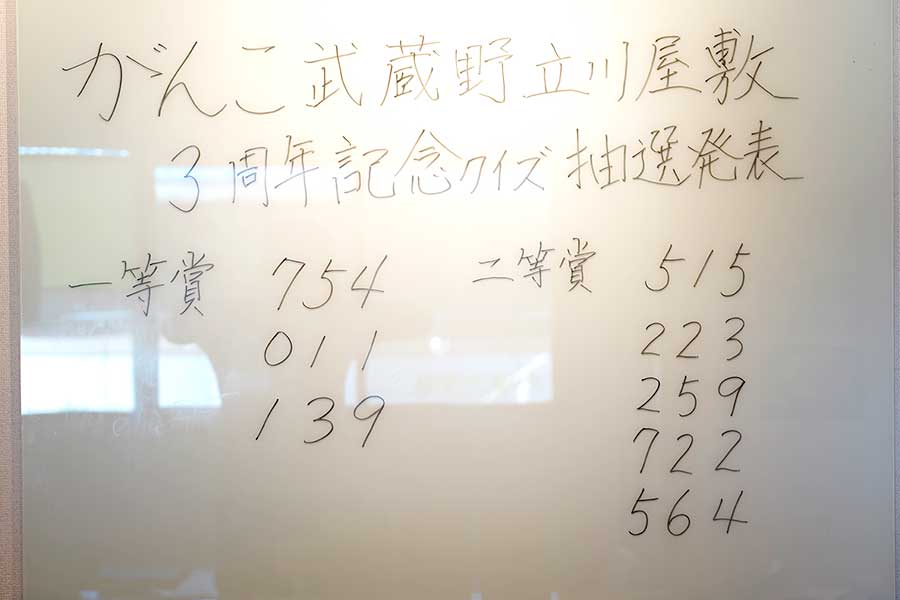 がんこ武蔵野立川屋敷
3周年記念クイズ抽選発表
一等賞 754
011
139
二等賞 515
223
259
722
564